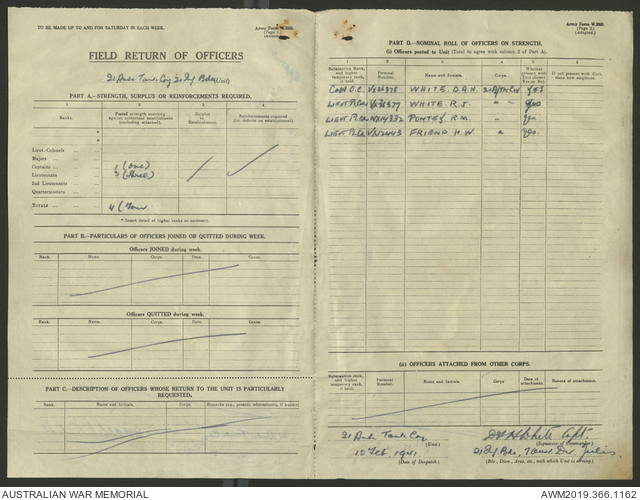 TO BE MADE UP TO AND FOR SATURDAY IN EACH WEEK.
Army Form W.3008.
(Page 1.)
(Adapted.)
FIELD RETURN OF OFFICERS
21 Anti Tank Coy 21 Inf Bde (Unit)
PART A.—STRENGTH, SURPLUS OR REINFORCEMENTS REQUIRED.
1 2 3 4
Ranks.
Posted strength counting against authorized establishment (excluding attached).
Surplus to Establishment.
Reinforcements required (i.e. deficits on establishment).
*
*
Lieut.-Colonels
Majors
Captains 1 (one)
Lieutenants 3 (three)
2nd Lieutenants
Quartermasters
TOTALS 4 (Four
* Insert detail of higher ranks as necessary.
PART B.—PARTICULARS OF OFFICERS JOINED OR QUITTED DURING WEEK.
Officers JOINED during week.
Rank. Name. Corps. Date. Cause.
Officers QUITTED during week.
Rank. Name. Corps. Date. Cause.
PART C.—DESCRIPTION OF OFFICERS WHOSE RETURN TO THE UNIT IS PARTICULARLY REQUESTED.
Rank. Name and Initials. Corps. Remarks (i.e., present whereabouts, if known)
Army Form W.3008.
(Page 2.)
(Adapted.)
PART D.—NOMINAL ROLL OF OFFICERS ON STRENGTH.
(i) Officers posted to Unit (Total to agree with column 2 of Part A).
1 2 3 4 5 6
Substantive Rank, and higher temporary rank, if held.
Personal Number.
Name and Initials.
Corps.
Whether present with Unit (Insert Yes or No).
If not present with Unit, state how employed.
WHITE D.A.H. YES
WHITE R.J. " Yes
R.M. " Yes
FRIEND H.W. " Yes.
(ii) OFFICERS ATTACHED FROM OTHER CORPS.
Substantive rank, and higher temporary rank, if held.
Personal Number.
Name and Initials.
Corps.
Date of attachment.
Nature of attachment.
21 Anti Tank Coy
(Unit)
White Capt.
(Signature of Commander)
15 Feb 1941
(Date of Despatch)
21 Inf Bde, 7 Aust Div, Julis
(Bde., Divn., Area, etc., with which Unit is serving)
AUSTRALIAN WAR MEMORIAL
AWM2019.366.1162